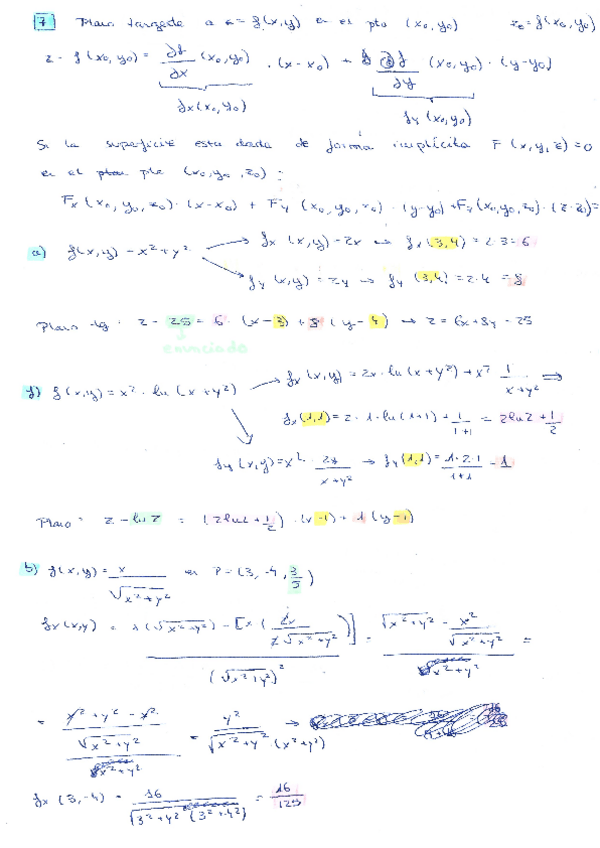 7 Plano tangente a z = f(x,y) en el pto (x₀,y₀) z₀ = f(x₀,y₀)
z - f(x₀,y₀) = ∂f/∂x (x₀,y₀) · (x-x₀) + ∂f/∂y (x₀,y₀) · (y-y₀)
fx(x₀,y₀) fy(x₀,y₀)
Si la superficie esta dada de forma implícita F(x,y,z)=0
en el pto (x₀,y₀,z₀) :
Fx(x₀,y₀,z₀)·(x-x₀) + Fy(x₀,y₀,z₀)·(y-y₀) + Fz(x₀,y₀,z₀)·(z-z₀)=
a) f(x,y) = x²+y² → fx(x,y) = 2x → fx(3,4) = 2·3 = 6
fy(x,y) = 2y → fy(3,4) = 2·4 = 8
Plano tg: z - 25 = 6·(x-3) + 8(y-4) → z = 6x+8y-25
enunciado
f) f(x,y) = x²·ln(x+y²) → fx(x,y) = 2x·ln(x+y²) + x² 1/(x+y²) ⟹
fx(1,1) = 2·1·ln(1+1) + 1/(1+1) = 2ln2 + 1/2
fy(x,y) = x²·2y/(x+y²) → fy(1,1) = 1·2·1/(1+1) = 1
Plano: z - ln2 = (2ln2 + 1/2)·(x-1) + 1(y-1)
b) f(x,y) = x/√(x²+y²) en P = (3,-4,3/5)
fx(x,y) = (1(√(x²+y²)) - [x(2x/(2√(x²+y²)))])/(√(x²+y²))² = (√(x²+y²) - x²/√(x²+y²))/(x²+y²) =
= ((x²+y²-x²)/√(x²+y²))/(x²+y²) = y²/(√(x²+y²)·(x²+y²)) →
fx(3,-4) = 16/(√(3²+4²)(3²+4²)) = 16/125